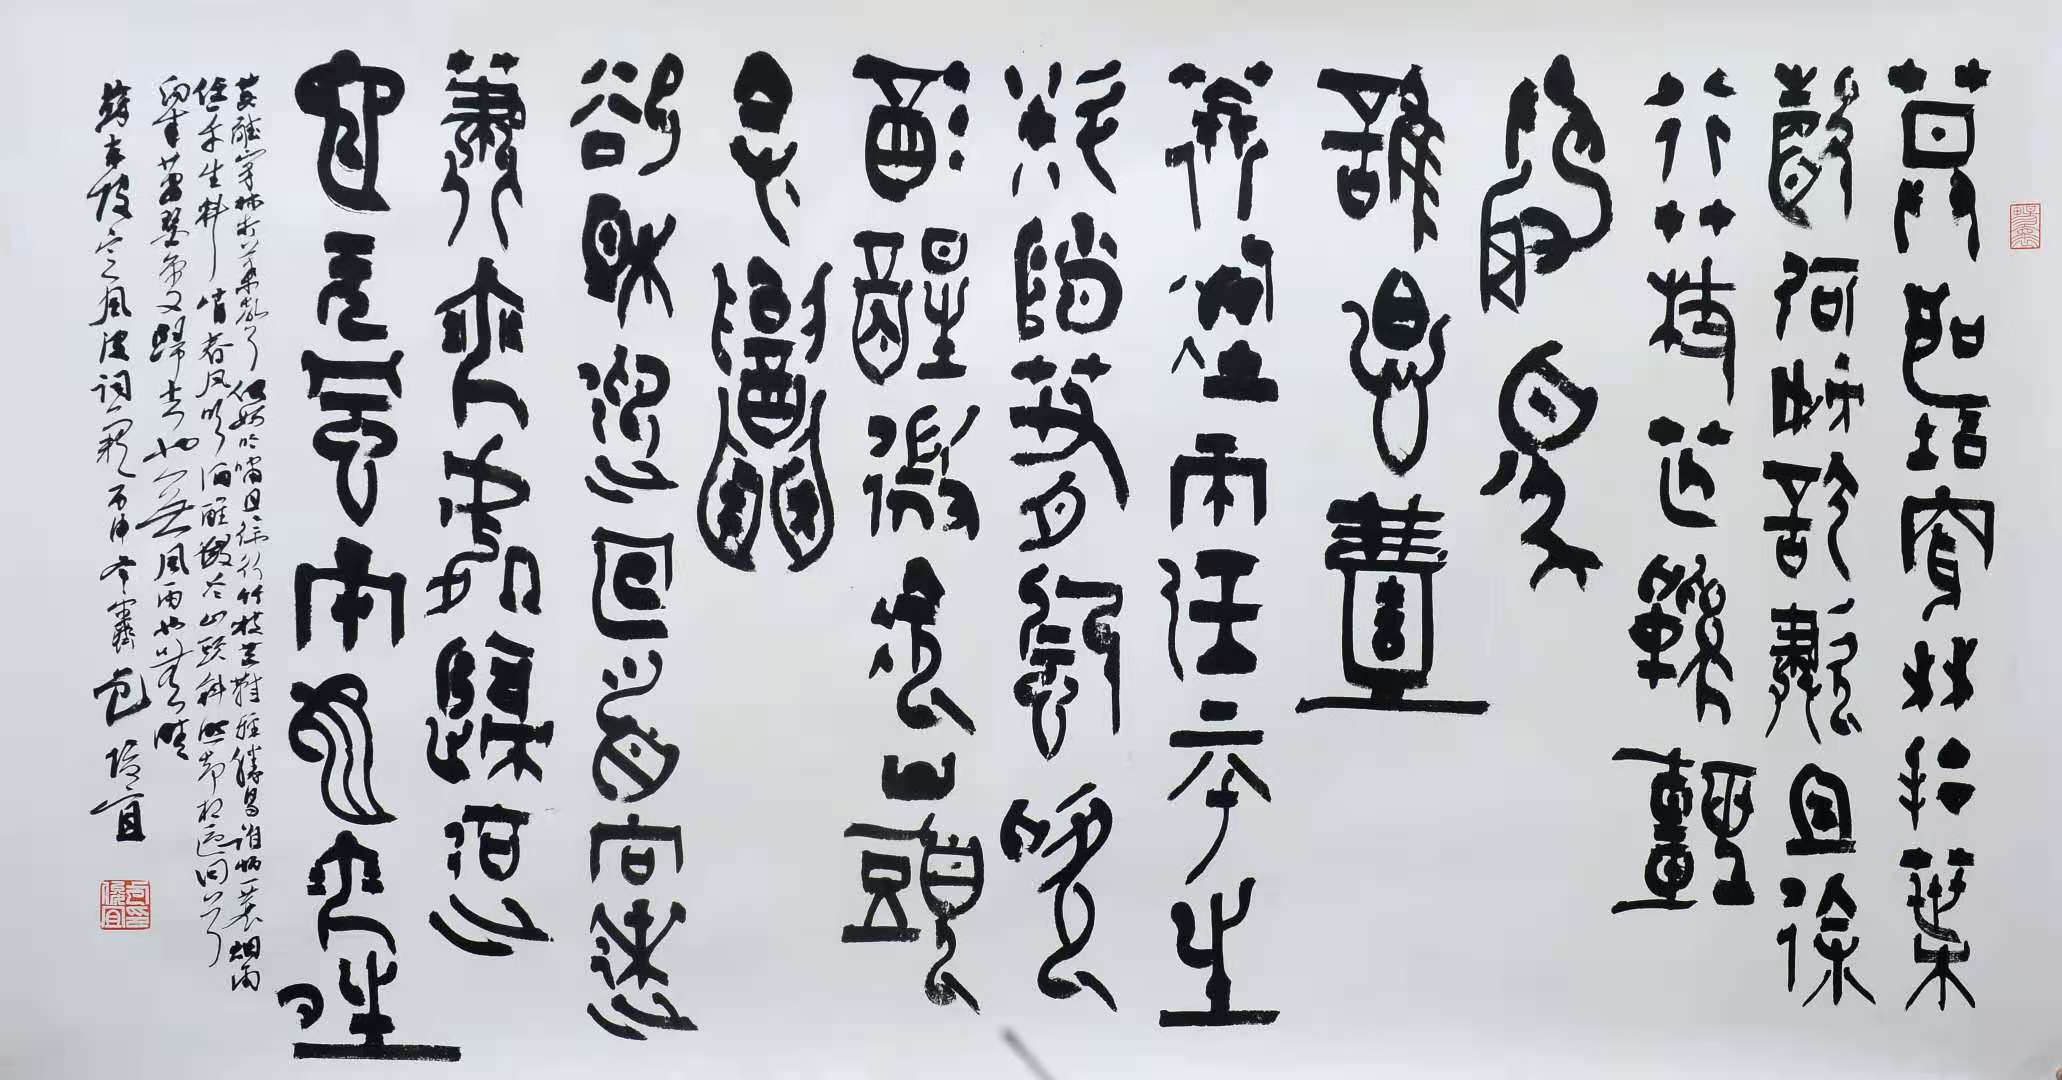 莫聽穿林打葉
聲何妨吟嘯且徐
行竹杖芒鞵輕
勝馬
誰怕壹
蓑煙雨任平生
料峭春風吹
酒醒微冷山頭
斜照
卻相迎回首向來
蕭瑟處歸去
也無風雨也無晴
莫聽穿林打葉聲何妨吟嘯且徐行竹杖芒鞋輕勝馬誰怕一蓑烟雨
任平生料峭春風吹酒醒微冷山頭斜照却相迎回首
向來蕭瑟處歸去也無風雨也無晴
蘇東坡定風波詞丙申冬